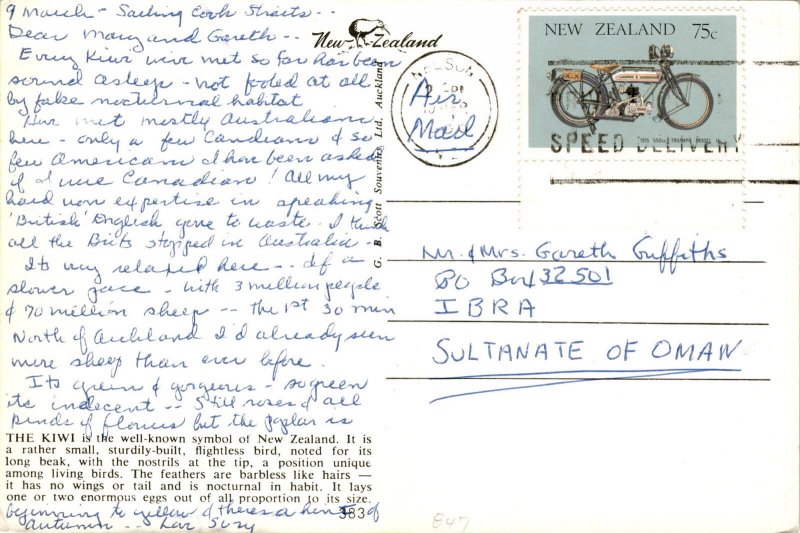 9 March - Sailing Cook Straits --
Dear Mary and Gareth --
Every Kiwi we've met so far has been
sound asleep - not fooled at all
by fake nocturnal habitat
Have met mostly Australians
here - only a few Canadians & so
few Americans I have been asked
if I were Canadian! All my
hard won expertise in speaking
'British' English gone to waste. I think
all the Brits stopped in Australia -
Its very relaxed here -- of a
slower pace - with 3 million people
& 70 million sheep -- the 1st 30 min
North of Auckland I'd already seen
more sheep than ever before.
Its green & gorgeous - so green
its indecent -- Still roses & all
kinds of flowers but the poplar is
THE KIWI is the well-known symbol of New Zealand. It is
a rather small, sturdily-built, flightless bird, noted for its
long beak, with the nostrils at the tip, a position unique
among living birds. The feathers are barbless like hairs —
it has no wings or tail and is nocturnal in habit. It lays
one or two enormous eggs out of all proportion to its size.
383
beginning to yellow & theres a hint of
Autumn -- Love Suzy
New Zealand
G. B. Scott Souvenirs Ltd., Auckland
NELSON
Air
Mail
NEW ZEALAND 75c
1915 550cc TRIUMPH MODEL
SPEED DELIVERY
Mr. & Mrs. Gareth Griffiths
PO Box 32501
IBRA
SULTANATE OF OMAN
847